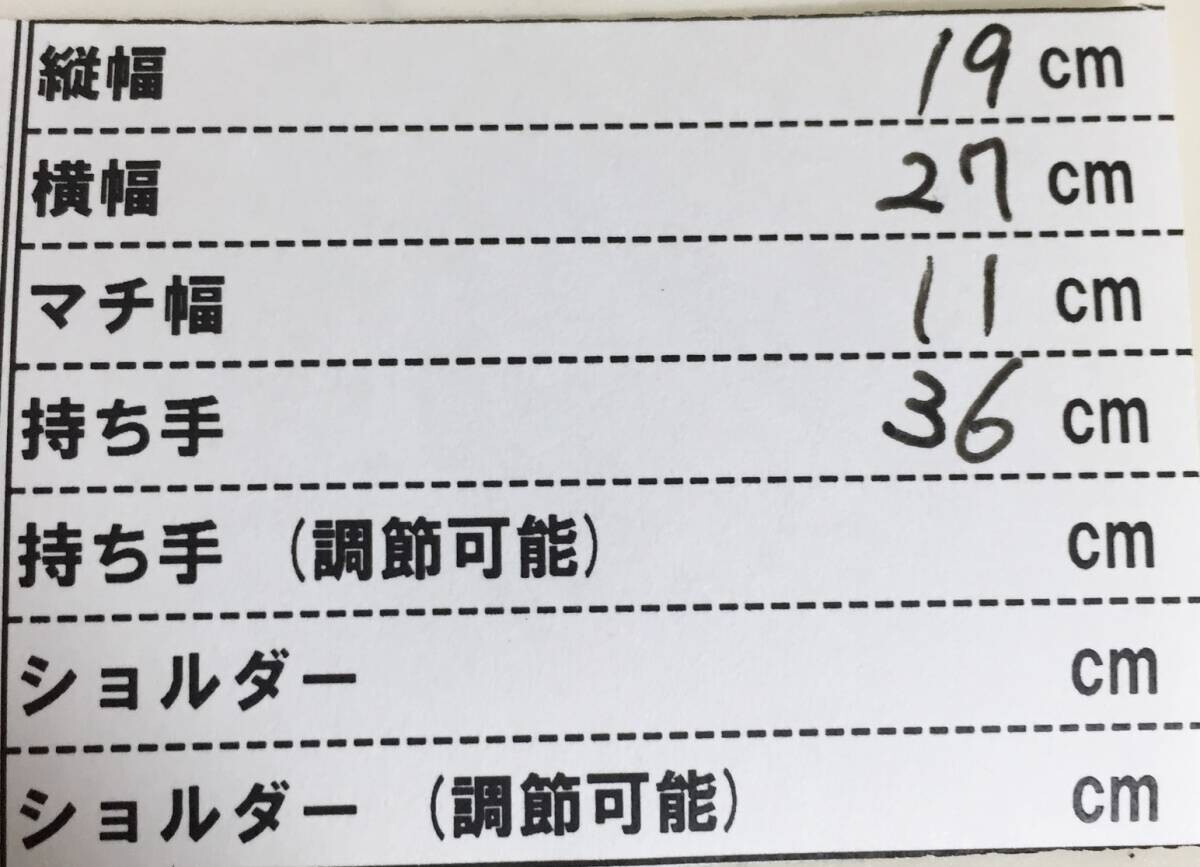 縦幅 19 cm
横幅 27 cm
マチ幅 11 cm
持ち手 36 cm
持ち手 (調節可能) cm
ショルダー cm
ショルダー (調節可能) cm